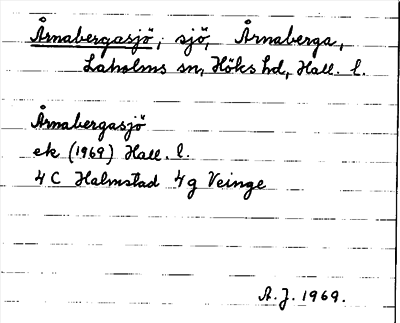 Årnabergasjö, sjö, Årnaberga,
Laholms sn, Höks hd, Hall. l.
Årnabergasjö
ek (1969) Hall. l.
4 C Halmstad 4g Veinge
A.J. 1969.